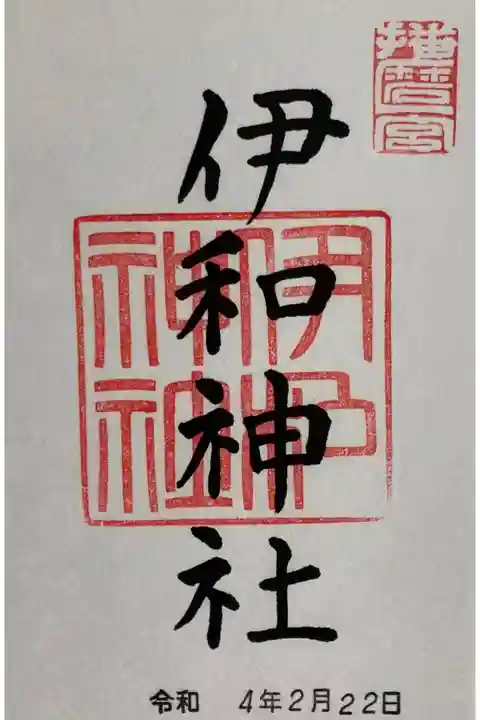 播磨一宮
伊和神社
伊和
神社
令和 4年2月22日